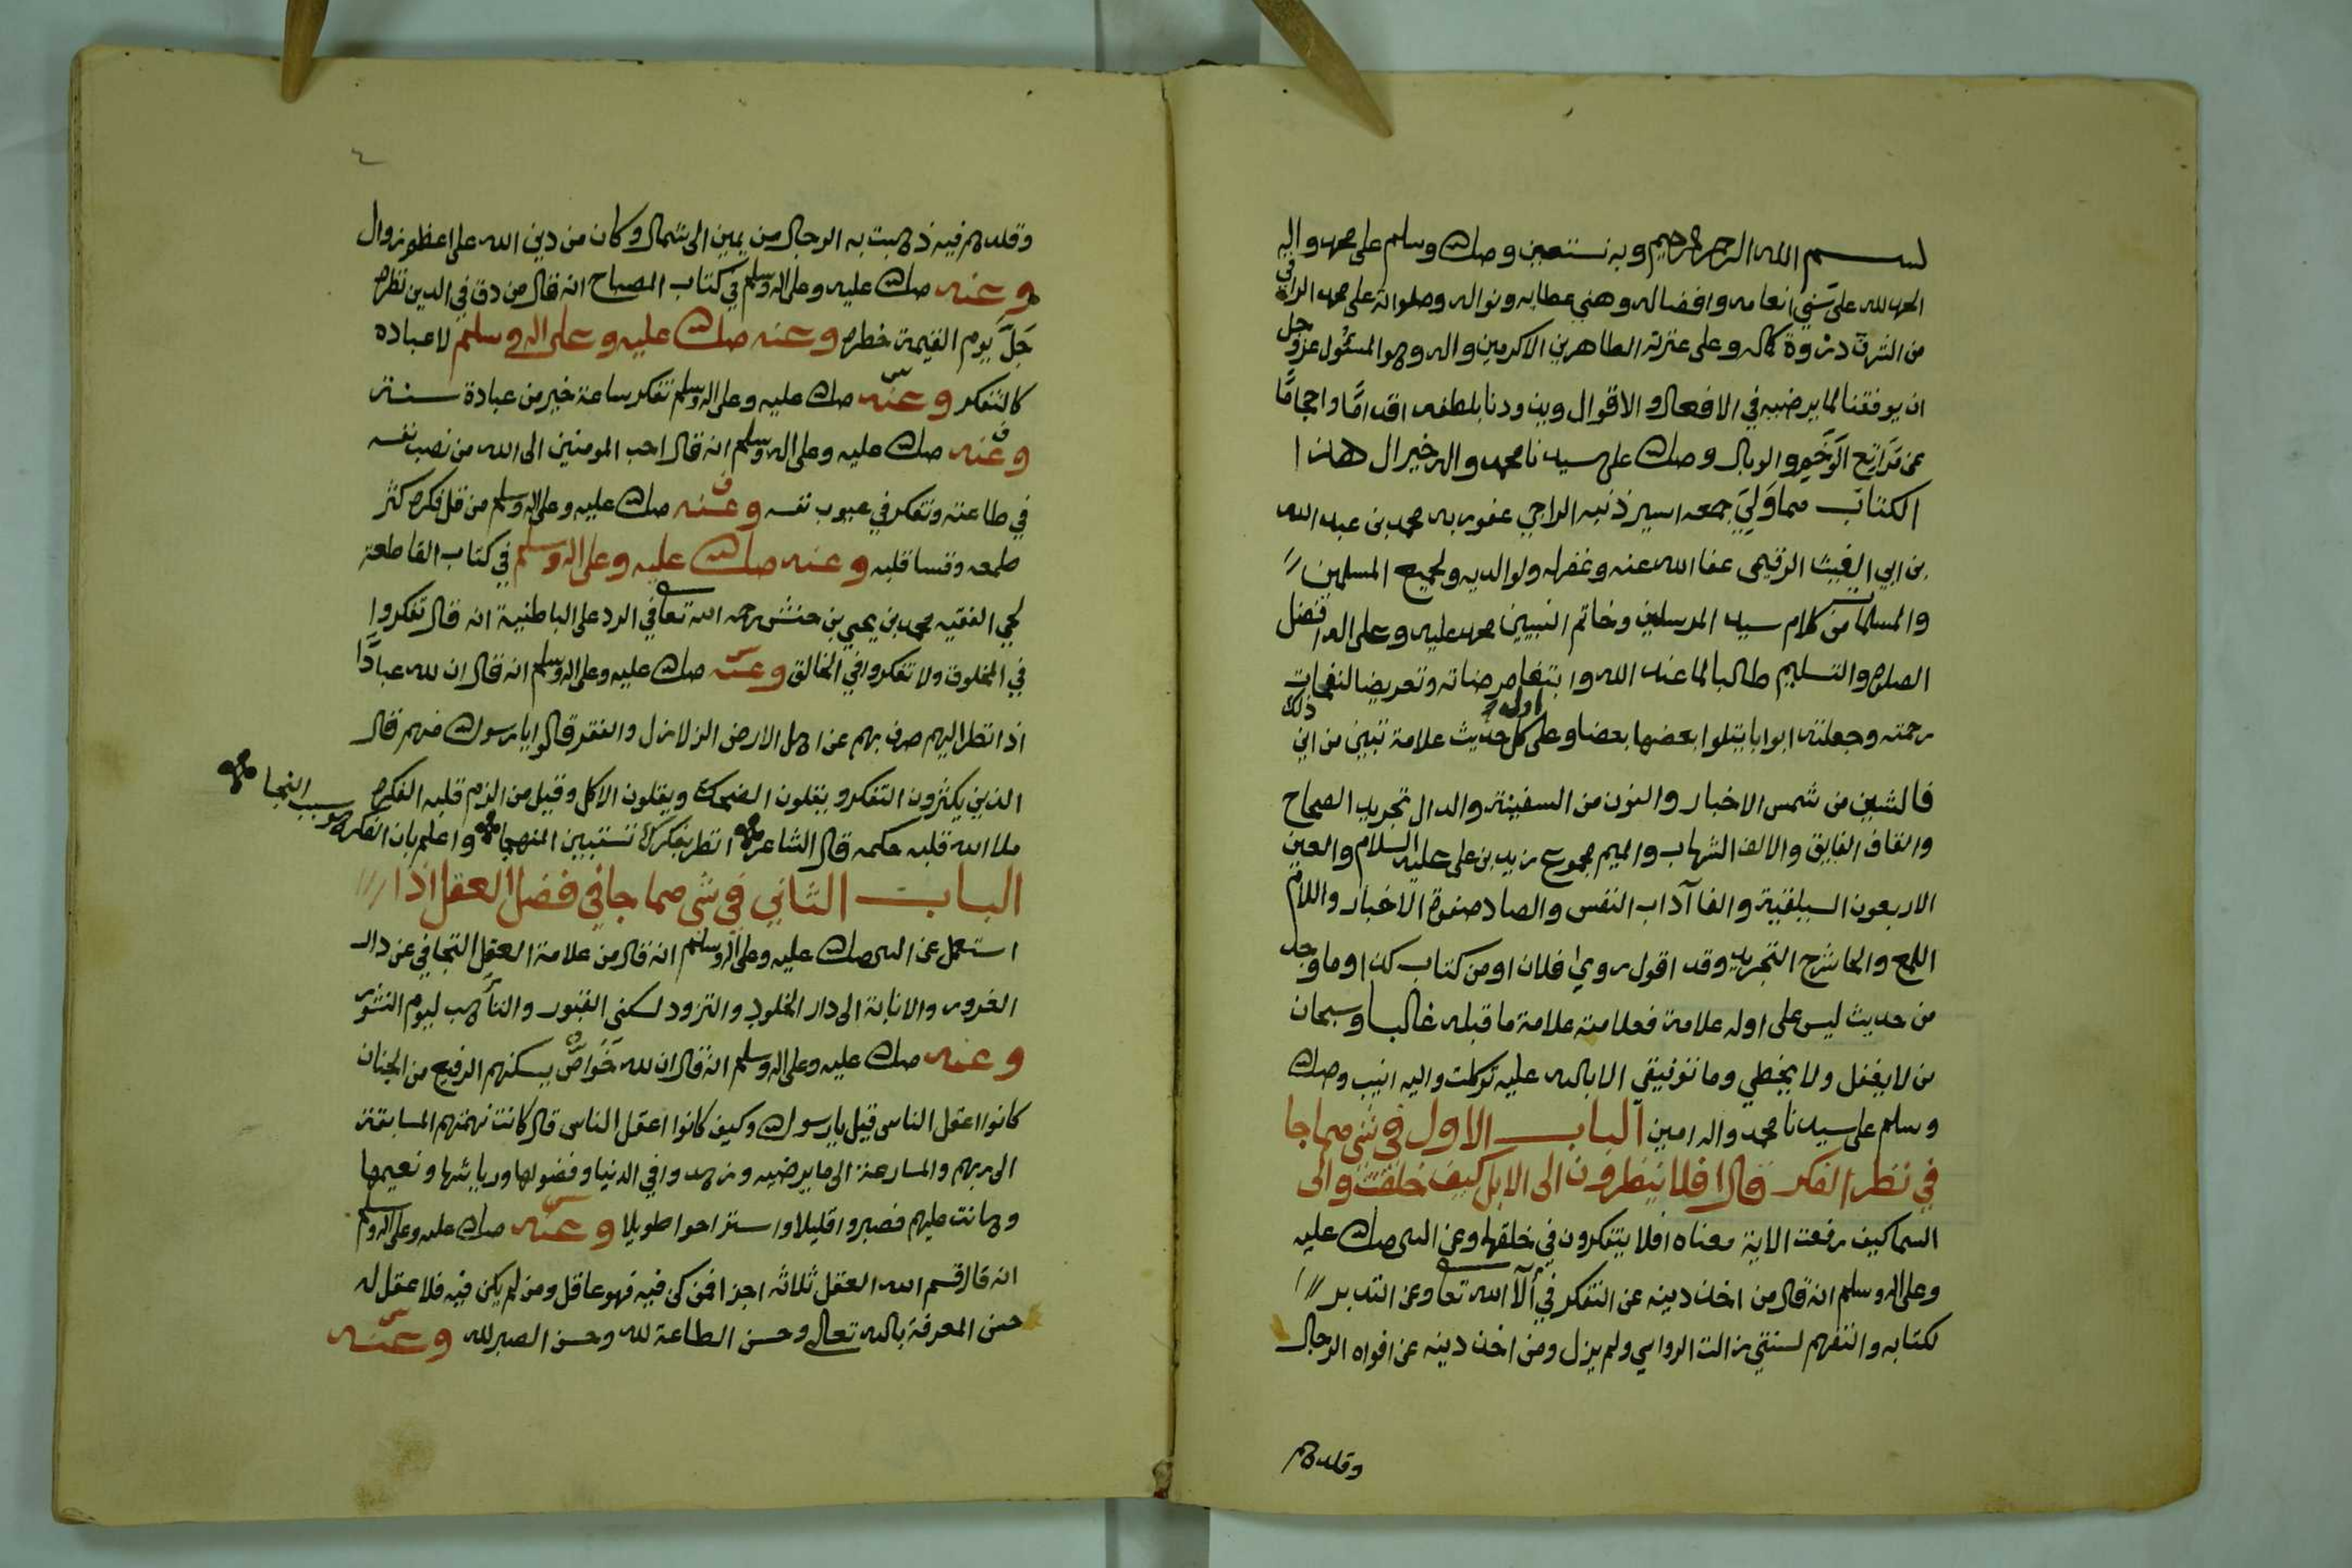 بسم الله الرحمن الرحيم وبه نستعين وصلى الله وسلم على محمد واله
الحمد لله على سني انعامه وافضاله وهني عطايه ونواله وصلواته على محمد الراقي
من الشرف ذروة كماله وعلى عترته الطاهرين الاكرمين واله وهو المسئول عز وجل
ان يوفقنا لما يرضيه في الافعال والاقوال ويزودنا بلطفه اقداما واحجاما
عن مراتع الوخم والوبال وصلى الله على سيدنا محمد واله خير ال هذا
الكتاب مما ولي جمعه اسير ذنبه الراجي عفو ربه محمد بن عبد الله
بن ابي الغيث الرقيمي عفا الله عنه وغفر له ولوالديه ولجميع المسلمين
والمسلمات من كلام سيد المرسلين وخاتم النبيين محمد عليه وعلى اله افضل
الصلوة والتسليم طالبا لما عند الله وابتغا مرضاته وتعريضا لنفحات
رحمته وجعلته ابوابا يتلوا بعضها بعضا وعلى اول كل حديث علامة تبين من اين ذلك
فالشين من شمس الاخبار والنون من السفينة والدال تجريد الصحاح
والقاف الفايق والالف الشهاب والميم مجموع زيد بن علي عليه السلام والعين
الاربعون السيلقية والفا آداب النفس والصاد صفوة الاخبار واللام
اللمع والحا شرح التجريد وقد اقول روي فلان او من كتاب كذا وما وجد
من حديث ليس على اوله علامة فعلامته علامة ما قبله غالبا وسبحان
من لا يغفل ولا يخطي وما توفيقي الا بالله عليه توكلت واليه انيب وصلى الله
وسلم على سيدنا محمد واله امين الباب الاول في شي مما جا
في نظر الفكر قال افلا ينظرون الى الابل كيف خلقت والى
السما كيف رفعت الاية معناه افلا يتفكرون في خلقها وعن النبي صلى الله عليه
وعلى اله وسلم انه قال من اخذ دينه عن التفكر في آلآ الله تعالى وعن التدبر
لكتابه والتفهم لسنتي زالت الرواسي ولم يزل ومن اخذ دينه عن افواه الرجال
وقلدهم
٤
وقلدهم فيه ذهبت به الرجال من يمين الى شمال وكان من دين الله على اعظم زوال
وعنه صلى الله عليه وعلى اله وسلم في كتاب المصباح انه قال من دق في الدين نظره
جل يوم القيمة خطره وعنه صلى الله عليه وعلى اله وسلم لا عباده
كالتفكر وعنه صلى الله عليه وعلى اله وسلم تفكر ساعة خير من عبادة سنة
وعنه صلى الله عليه وعلى اله وسلم انه قال احب المومنين الى الله من نصب نفسه
في طاعته وتفكر في عيوب نفسه وعنه صلى الله عليه وعلى اله وسلم من قل فكره كثر
طمعه وقسا قلبه وعنه صلى الله عليه وعلى اله وسلم في كتاب القاطعة
لحي الفقيه محمد بن يحيى بن حنش رحمه الله تعالى في الرد على الباطنية انه قال تفكروا
في المخلوق ولا تفكروا في الخالق وعنه صلى الله عليه وعلى اله وسلم انه قال ان لله عبادا
اذا نظر اليهم صرف بهم عن اهل الارض الزلازل والفقر قالوا يا رسول الله منهم قال
الذين يكثرون التفكر ويقلون الضحك ويقلون الاكل وقيل من الزم قلبه الفكره
ملا الله قلبه حكمه قال الشاعر انظر بفكرك تستبين المنهجا واعلم بان الفكر سبب النجا
الباب الثاني في شي مما جا في فضل العقل اذا
استعمل عن النبي صلى الله عليه وعلى اله وسلم انه قال من علامة العقل التجافي عن دار
الغرور والانابة الى دار الخلود والتزود لسكنى القبور والتأهب ليوم النشور
وعنه صلى الله عليه وعلى اله وسلم انه قال ان لله خواص يسكنهم الرفيع من الجنان
كانوا اعقل الناس قيل يا رسول الله وكيف كانوا اعقل الناس قال كانت نهمتهم المسابقة
الى ربهم والمسارعة الى ما يرضيه وزهدوا في الدنيا وفضولها ورياشها ونعيمها
وهانت عليهم فصبروا قليلا واستراحوا طويلا وعنه صلى الله عليه وعلى اله وسلم
انه قال قسم الله العقل ثلاثه اجزا فمن كن فيه فهو عاقل ومن لم يكن فيه فلا عقل له
حسن المعرفة بالله تعالى وحسن الطاعة لله وحسن الصبر لله وعنه